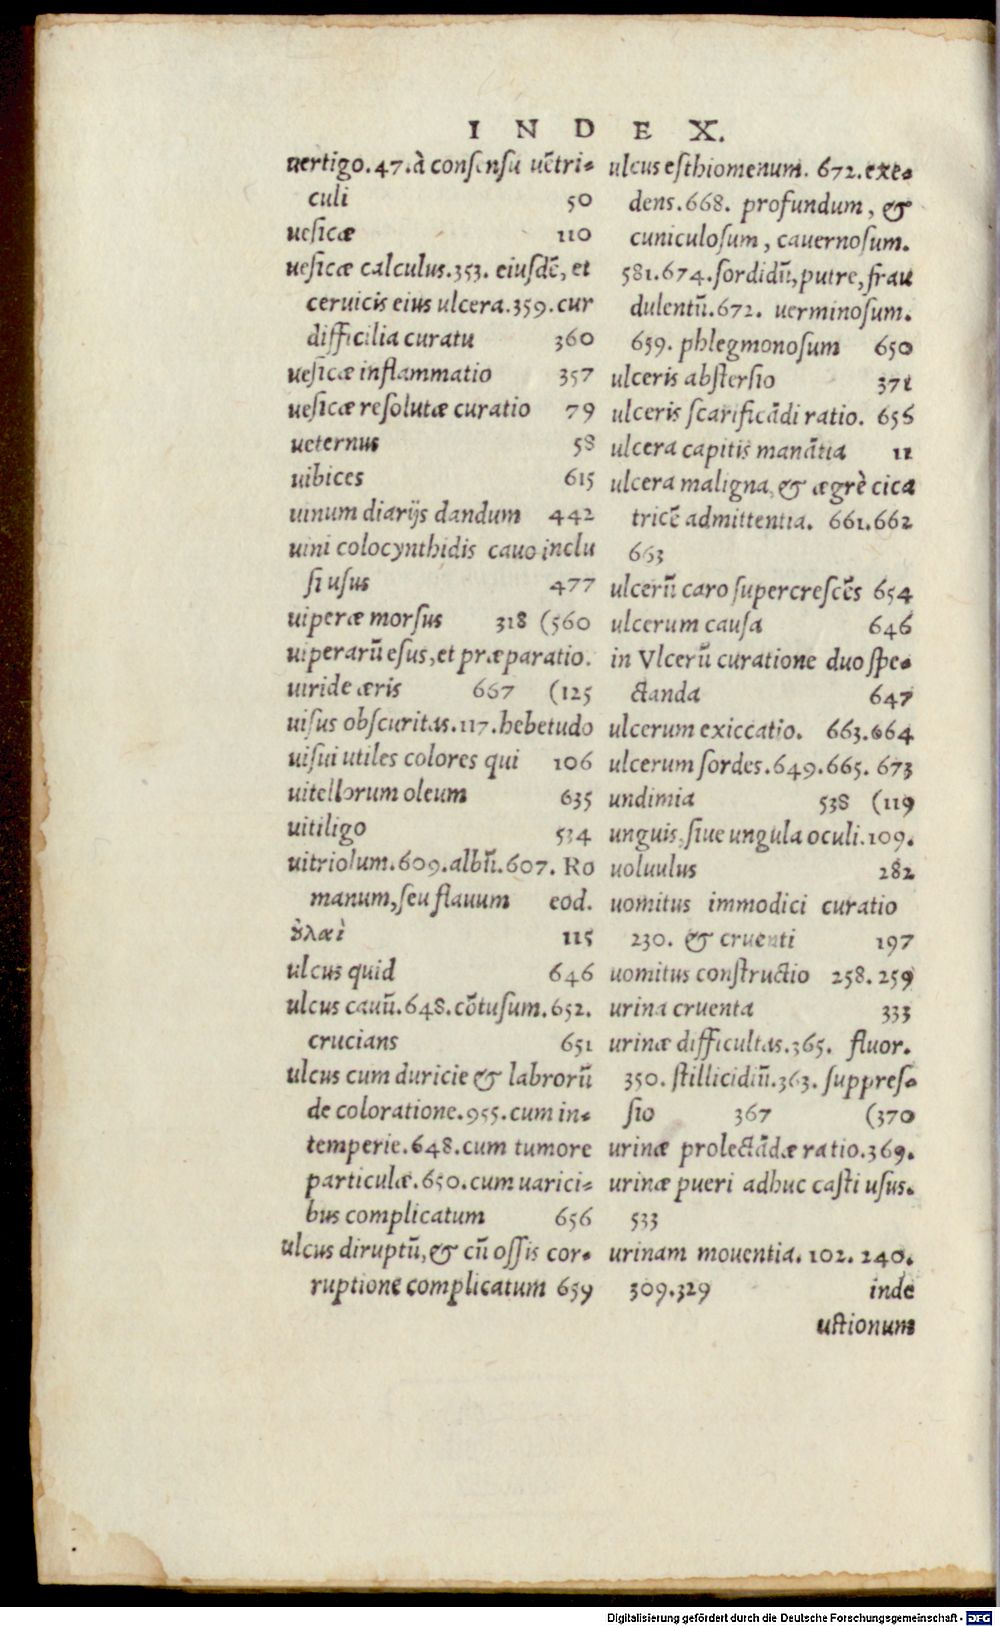 INDEX.
uertigo.47.à consensu uētri-
culi 50
uesicæ 110
uesicæ calculus.353. eiusdē, et
ceruicis eius ulcera.359.cur
difficilia curatu 360
uesicæ inflammatio 357
uesicæ resolutæ curatio 79
ueternus 58
uibices 615
uinum diarijs dandum 442
uini colocynthidis cauo inclu
si usus 477
uiperæ morsus 318 (560
uiperarū esus, et præparatio.
uiride æris 667 (125
uisus obscuritas.117.hebetudo
uisui utiles colores qui 106
uitellorum oleum 635
uitiligo 534
uitriolum.609.albū.607. Ro
manum, seu flauum eod.
ὀυλαὶ 115
ulcus quid 646
ulcus cauū.648.cōtusum.652.
crucians 651
ulcus cum duricie & labrorū
de coloratione.955.cum in-
temperie.648.cum tumore
particulæ.650.cum uarici-
bus complicatum 656
ulcus diruptū, & cū ossis cor-
ruptione complicatum 659
ulcus esthiomenum. 672.exe-
dens.668. profundum, &
cuniculosum, cauernosum.
581.674.sordidū, putre, frau
dulentū.672. uerminosum.
659. phlegmonosum 650
ulceris abstersio 371
ulceris scarificādi ratio. 656
ulcera capitis manātia 11
ulcera maligna, & ægrè cica
tricē admittentia. 661.662
663
ulcerū caro supercrescēs 654
ulcerum causa 646
in Vlcerū curatione duo spe-
ctanda 647
ulcerum exiccatio. 663.664
ulcerum sordes.649.665. 673
undimia 538 (119
unguis, siue ungula oculi.109.
uoluulus 282
uomitus immodici curatio
230. & cruenti 197
uomitus constructio 258.259
urina cruenta 333
urinæ difficultas.365. fluor.
350. stillicidiū.363. suppres-
sio 367 (370
urinæ prolectādæ ratio.369.
urinæ pueri adhuc casti usus.
533
urinam mouentia. 102. 240.
309.329 inde
uctionum
Digitalisierung gefördert durch die Deutsche Forschungsgemeinschaft - DFG